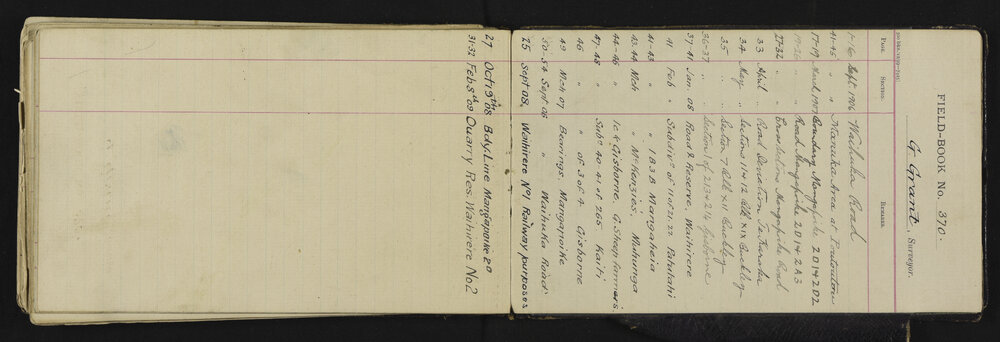 FIELD-BOOK No. 370.
G Grant, Surveyor.
PAGE. SECTION. REMARKS.
1-16 Sept. 1906 Waihuka Road
41-45 " Manuka Area at
17-19 March 1907 Boundary Mangapoike 2014202
19-26 " Road Mangapoike 2014 2A3
27-32 " Mangapoike Road
33 April " Road Deviation
34 May " Sections 11 & 12 Blk XIX Buckley
35 " Section 7 Blk XII Buckley
36-37 " Section 1 of 213 & 214 Gisborne
37-41 Jan. 08 Road & Reserve. Waihirere
41 Feb " Subdivn of 11 of 21.22 Patutahi
41-43 " " 1 B 3 B Mangaheia
43.44 Mch " McKenzie's, Muhunga
44-46 " 1c4 Gisborne. G. Sheep farmers.
47.48 " Subn 40.41 of 265 Kaiti
48 " " of 3 of 4 Gisborne
49 Mch 07 Bearings. Mangapoike
50-54 Sept 06 " Waihuka Road
25 Sept 08. Waihirere No1 Railway purposes
27 Oct 19th 08 Bdy. Line Mangapoike 20
31-32 Feb 8th 09 Quarry Res. Waihirere No2